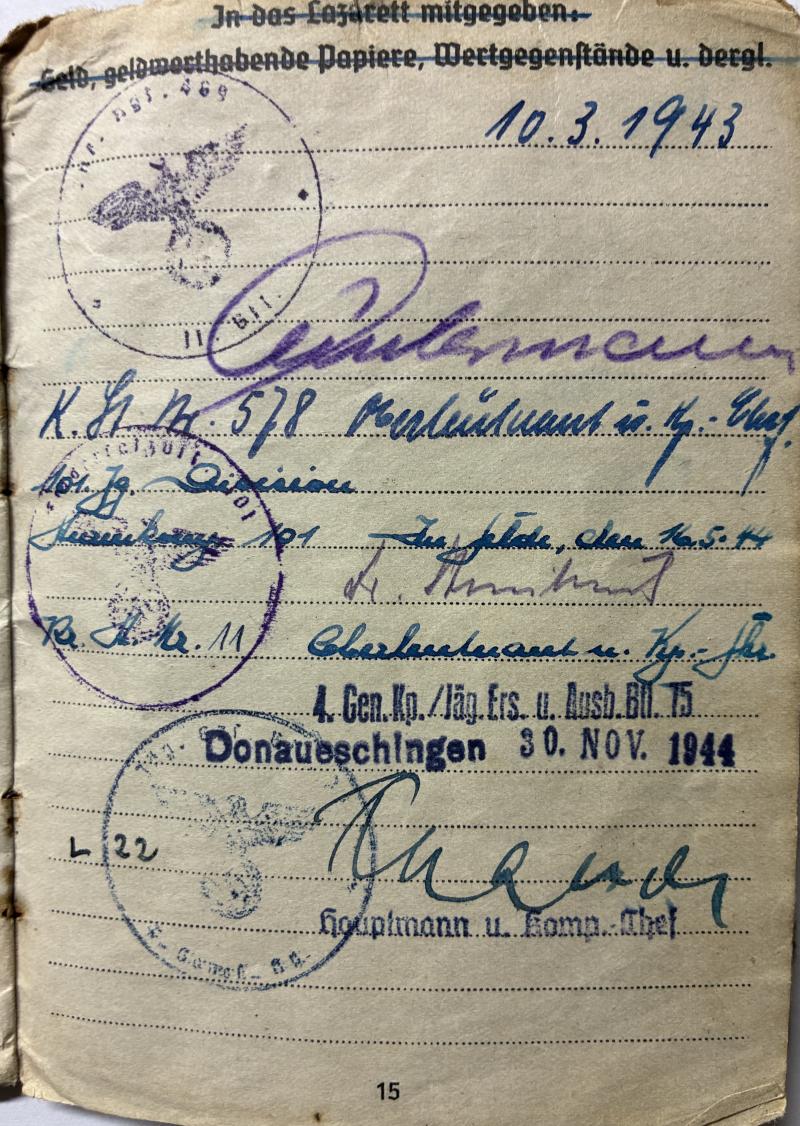 In das Lazarett mitgegeben:
Geld, geldwerthabende Papiere, Wertgegenstände u. dergl.
469
10.3.1943
II. Btl.
K. St. Nr. 578 Oberleutnant u. Kp.-Chef.
101. Jg. Division
101 Im Felde, den 16.5.44
St. Nr. 11 Oberleutnant u. Kp.-Fhr.
4. Gen. Kp. / Jäg. Ers. u. Ausb. Btl. 75
Donaueschingen 30. NOV. 1944
L 22
Hauptmann u. Komp.-Chef
15